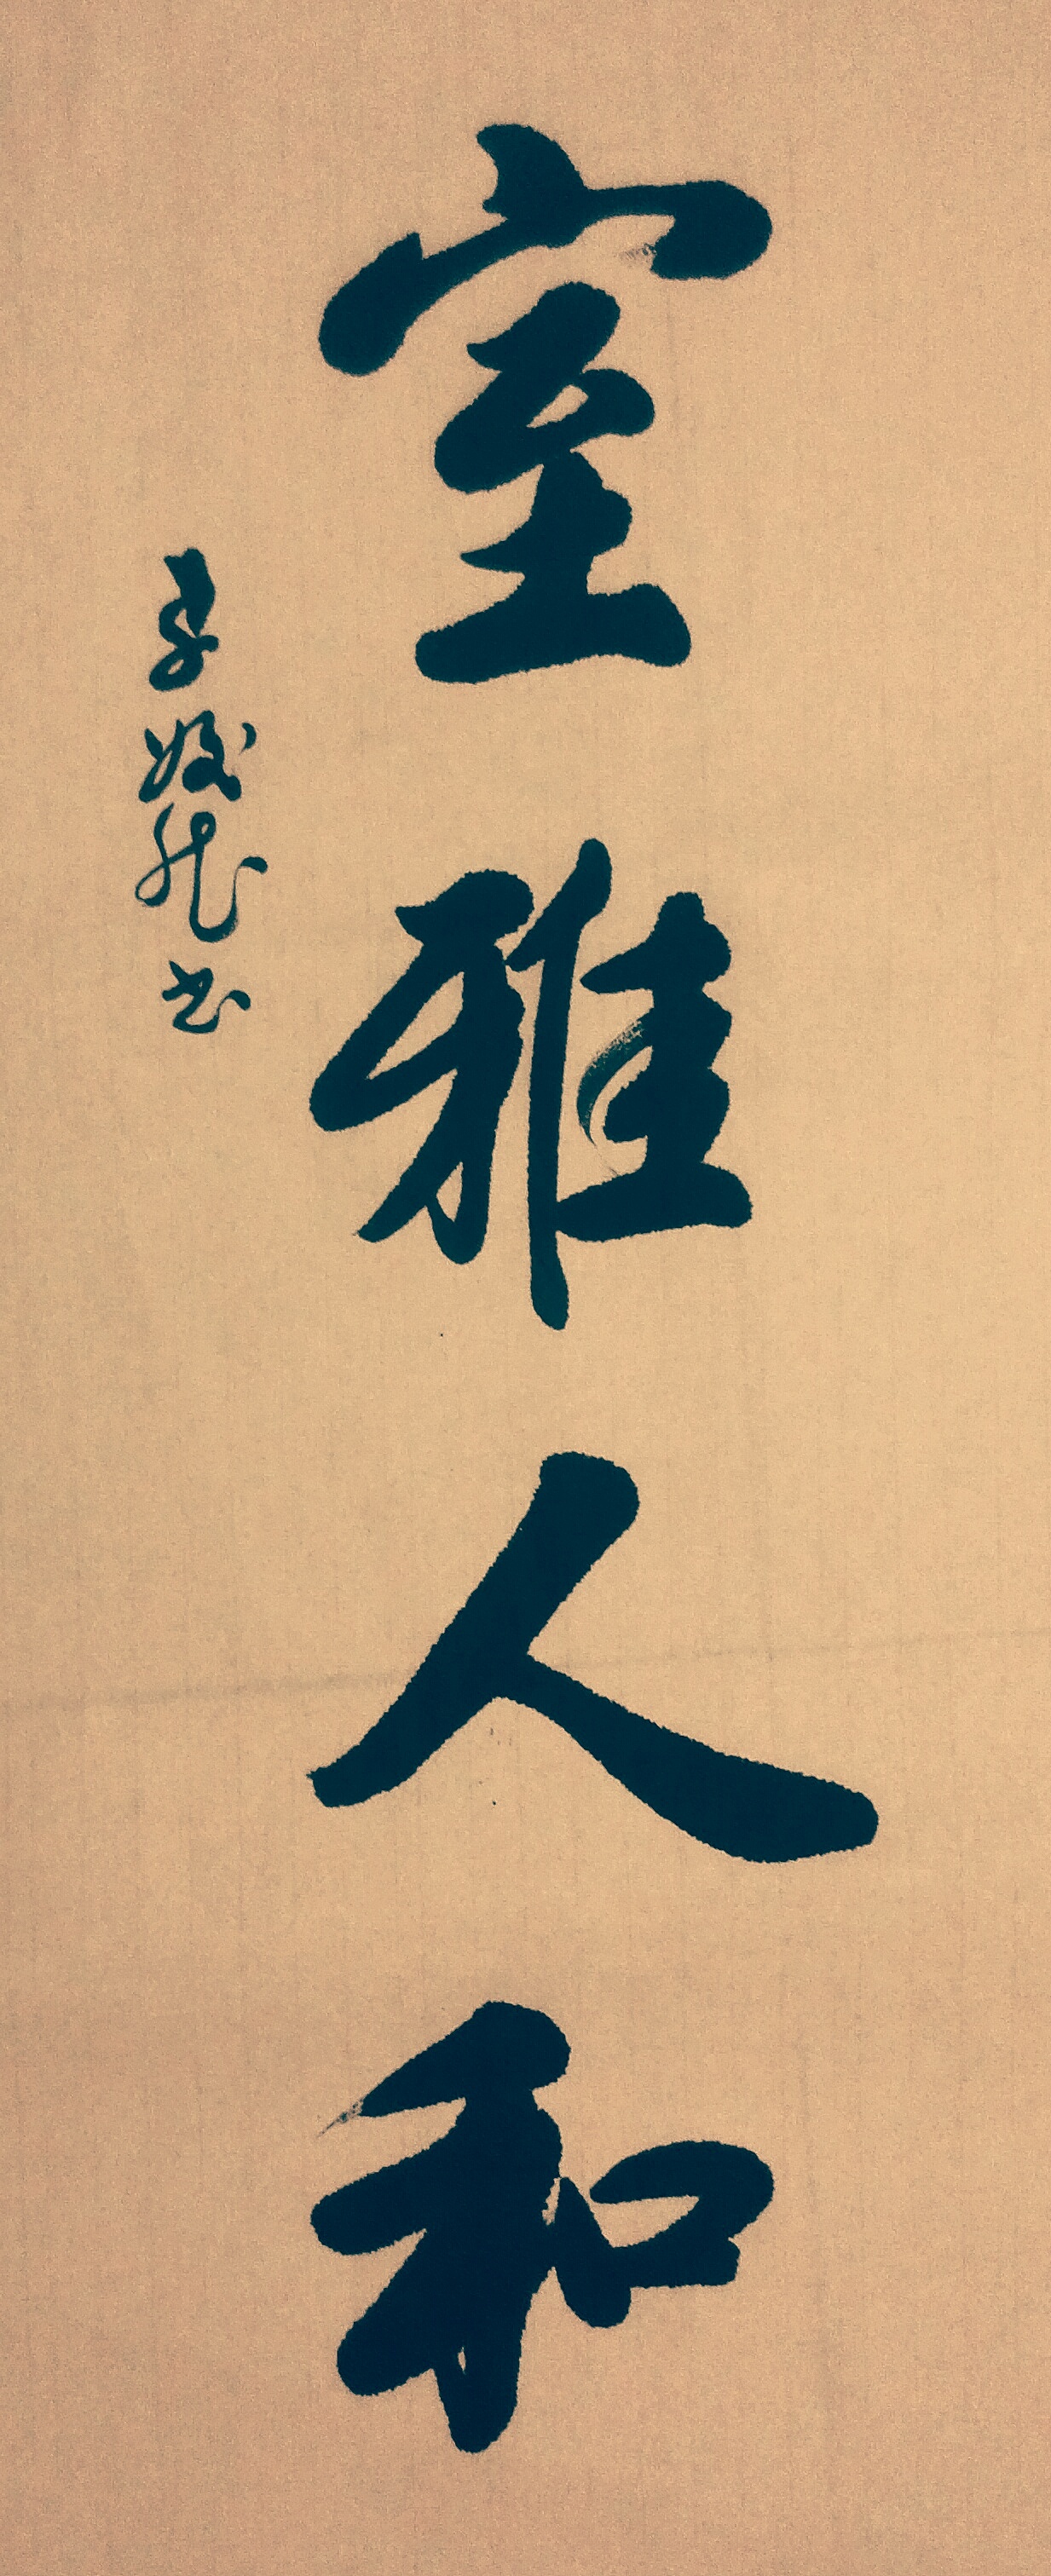 室雅人和
书